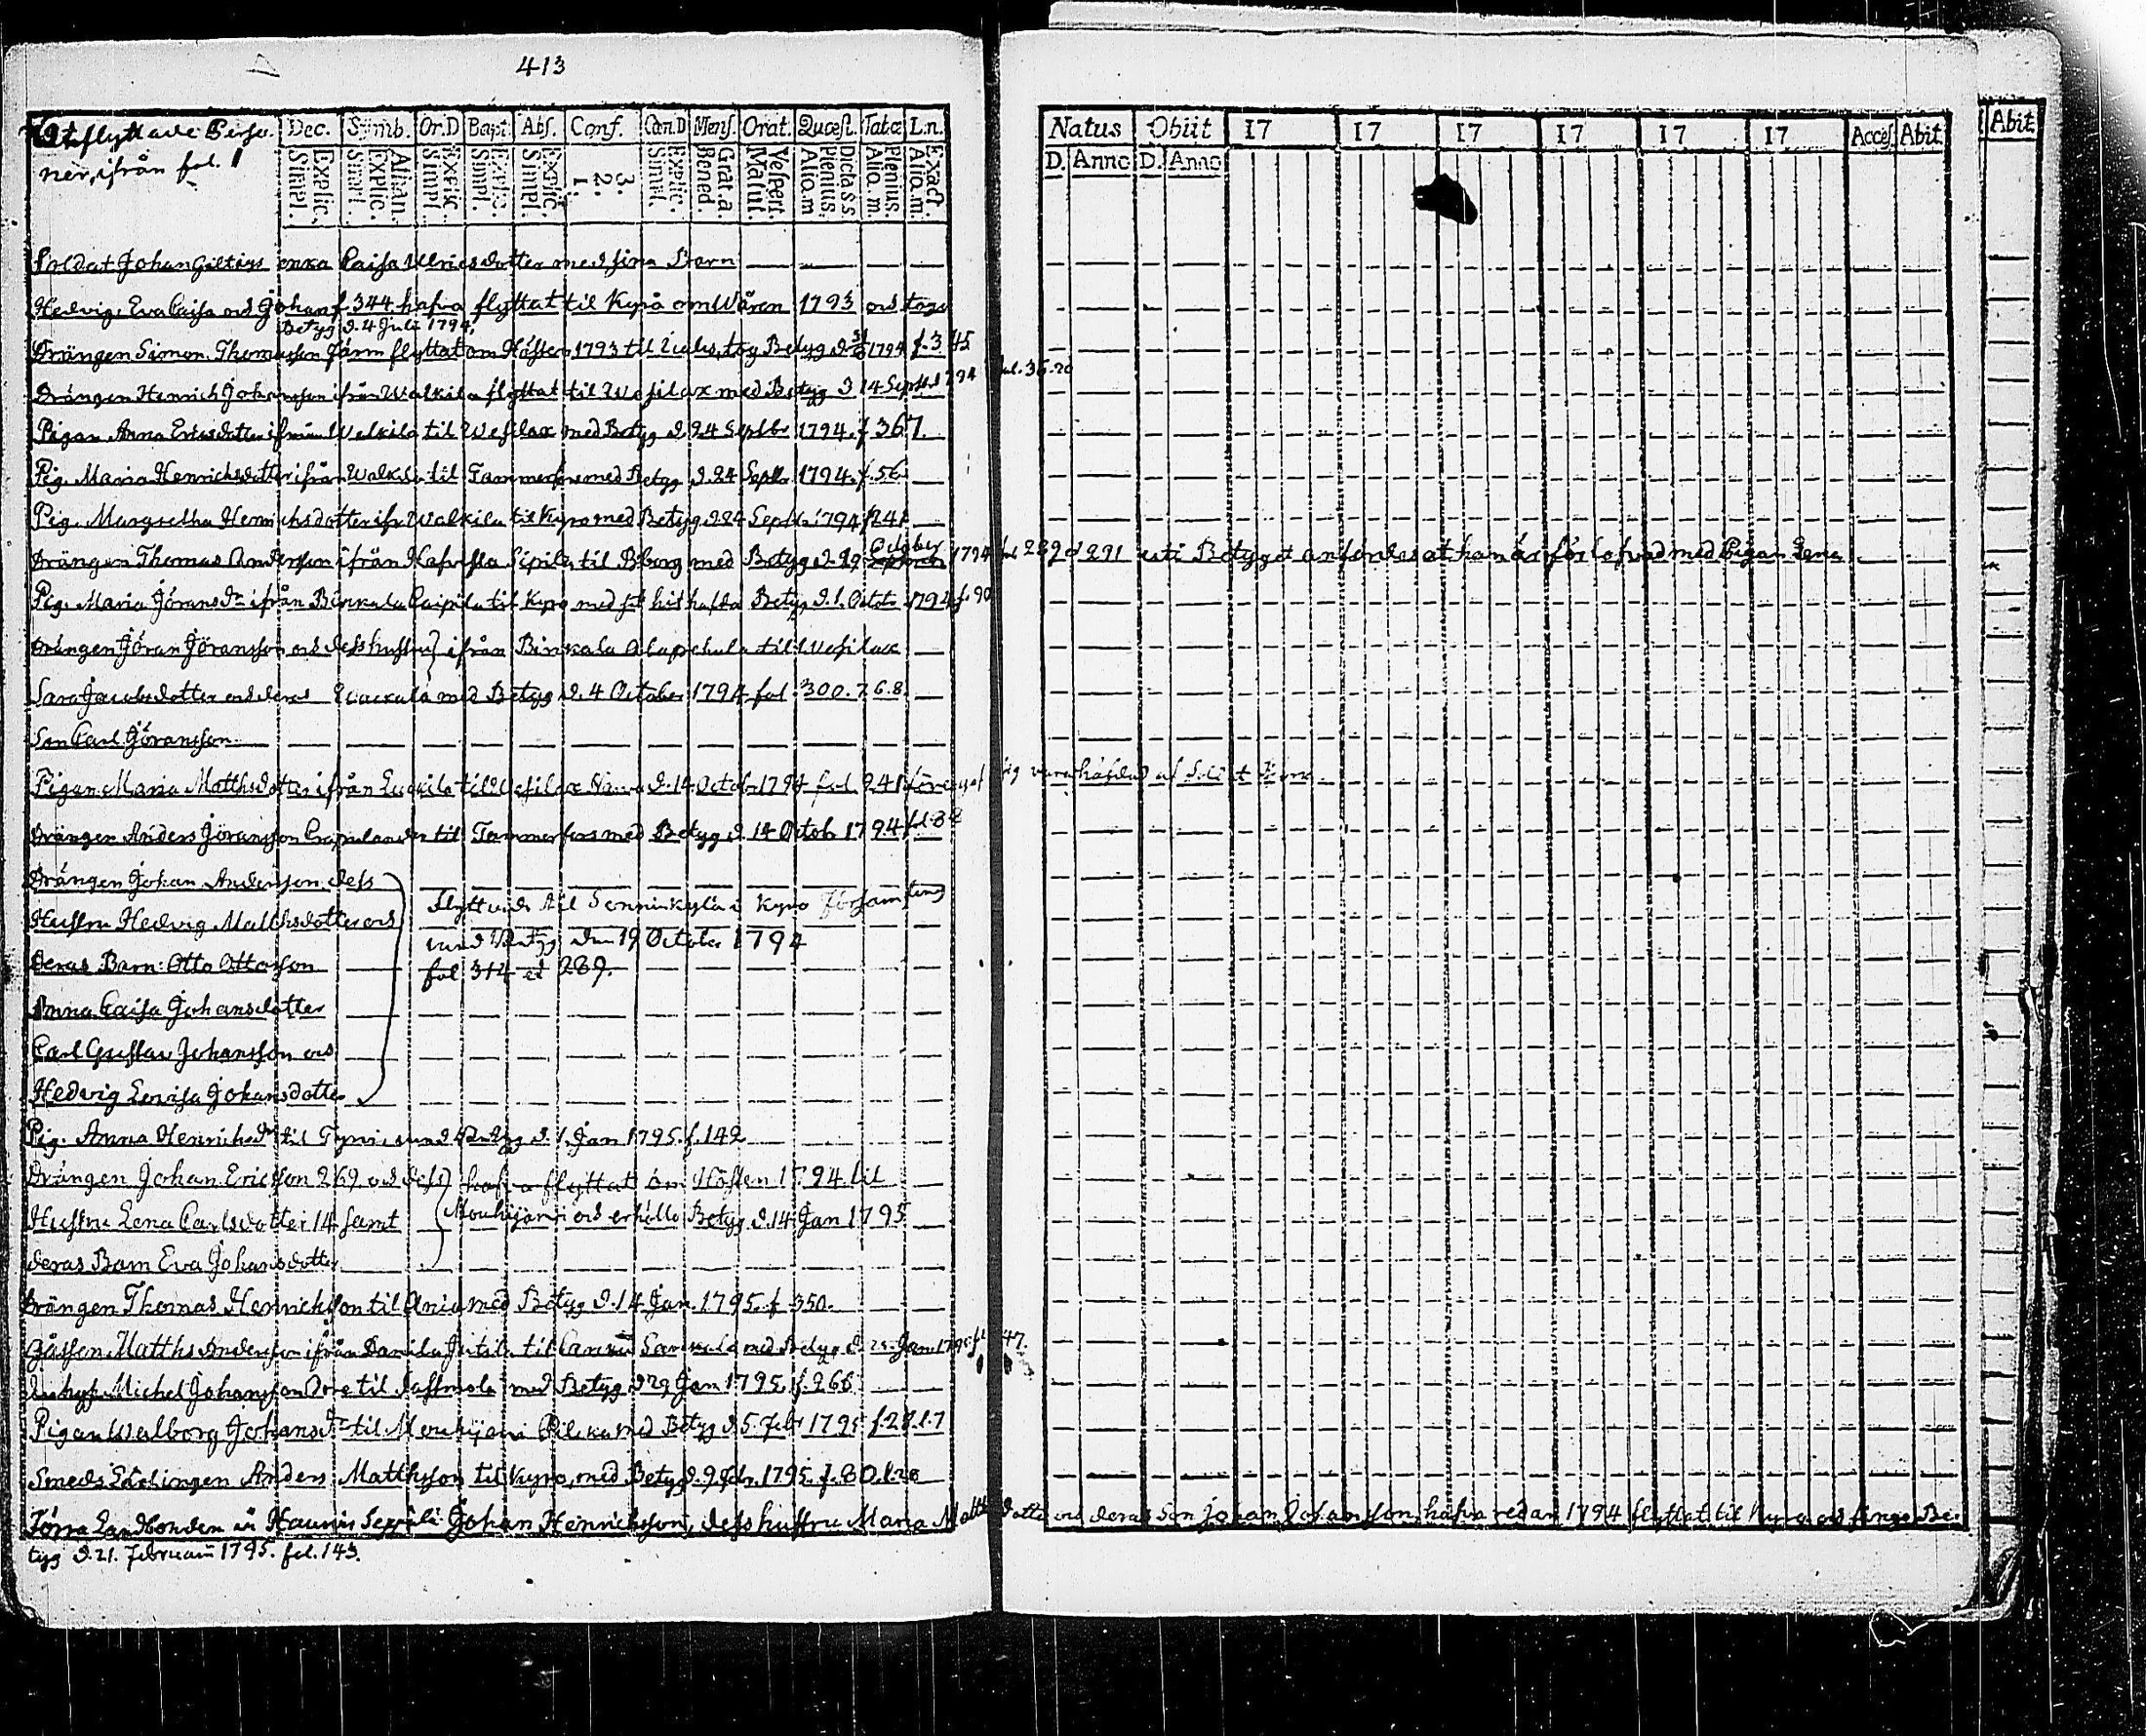 413
Utflyttade Perso-
ner, ifrån fol. 1
Dec. Symb. Or.D Bapt. Abs. Conf. Can.D Mens. Orat. Quæst. Tabœ L.n.
Simpl. Explic. Simpl. Explic. Athan. Simpl. Explic. Simpl. Explic. Simpl. Explic. 1. 2. 3. Simpl. Explic. Bened. Grat.a. Matut. Vespert. Alio.m Plenius. Dicta s.s Alio.m. Plenius. Alio.m. Exact.
Natus Obiit 17 17 17 17 17 17 Acces. Abit. Abit.
D. Anno D. Anno
Soldat Johan enka Caisa Ulricsdotter med sina Barn
Hedvig, Eva Caisa och Johan f. 344 hafva flyttat til Kyro om Wåren 1793 och togo
Betyg d. 4 Juli 1794
Drängen Simon Thomasson flyttat om Hösten 1793 til tog Betyg d. 1794 f. 345
Drängen Henrich Johansson ifrån Walkila flyttat til Wesilax med Betyg d 14 Sept. 1794 fol. 36.20
Pigan Anna Ericsdotter ifrån Walkila til Wesilax med Betyg d. 24 Septbr 1794. f 367.
Pig. Maria Henrichsdotter ifrån Walkila til Tammerfors med Betyg d. 24 Sept. 1794. f. 56
Pig. Margretha Henrichsdotter ifr. Walkila til Kyro med Betyg d. 24 Septbr 1794 f 241
Drängen Thomas Andersson ifrån Sipila til Bborg med Betyg d. 29 October 1794 fol 289 & 291 uti Betyget anfördes at han är förlofvad med Pigan Lena
Pig. Maria Jöransdr ifrån Birkala til Kyro med sitt hit hafda Betyg d. 1. Octob. 1794 f. 90
Drängen Jöran Jöransson och dess hustru ifrån Birkala til Wesilax
Sara Jacobsdotter och deras med Betyg d. 4 October 1794 fol 300. 7. 6. 8.
Son Carl Jöransson
Pigan Maria Matthsdotter ifrån til Wesilax d. 14 Octob 1794 fol. 241 sig vara häfdad af
Drängen Anders Jöransson til Tammerfors med Betyg d. 14 Octob. 1794 fol 38
Drängen Johan Andersson, dess
Hustru Hedvig Matthsdotter och
Flyttade til i Kyro Församling
med Betyg den 19 October 1794
Deras Barn: Otto Ottosson
fol 314 et 289.
Anna Caisa Johansdotter
Carl Gustav Johansson och
Hedvig Lovisa Johansdotter
Pig. Anna Henrichsdr til med Betyg d. 1 Jan 1795. f. 142
Drängen Johan Ericsson 269 och dess hafva flyttat om Hösten 1794 til
Hustru Lena Carlsdotter 14 samt Mouhijärvi och erhöllo Betyg d. 14 Jan 1795
deras Barn Eva Johansdotter
Drängen Thomas Henrichsson til med Betyg d. 14 Jan. 1795. f. 350.
Gåssen Matths Andersson ifrån til med Betyg d. 25 Jan. 1795 fol 47.
Inhys. Michel Johansson til med Betyg d 29 Jan 1795. f. 266
Pigan Walborg Johansdr til Mouhijärvi med Betyg d 5 Febr 1795 f. 28. l. 7
Smeds Lärlingen Anders Matthsson til Kyro med Betyg d. 9 Febr. 1795. f. 80. l. 20
Förra Landbonden å Haunis Seppälä Johan Henrichsson, dess hustru Maria Matthsdotter och deras Son Johan Johansson, hafva redan 1794 flyttat til Kyro och finge Be-
tyg d. 21. Februarii 1795. fol. 143.